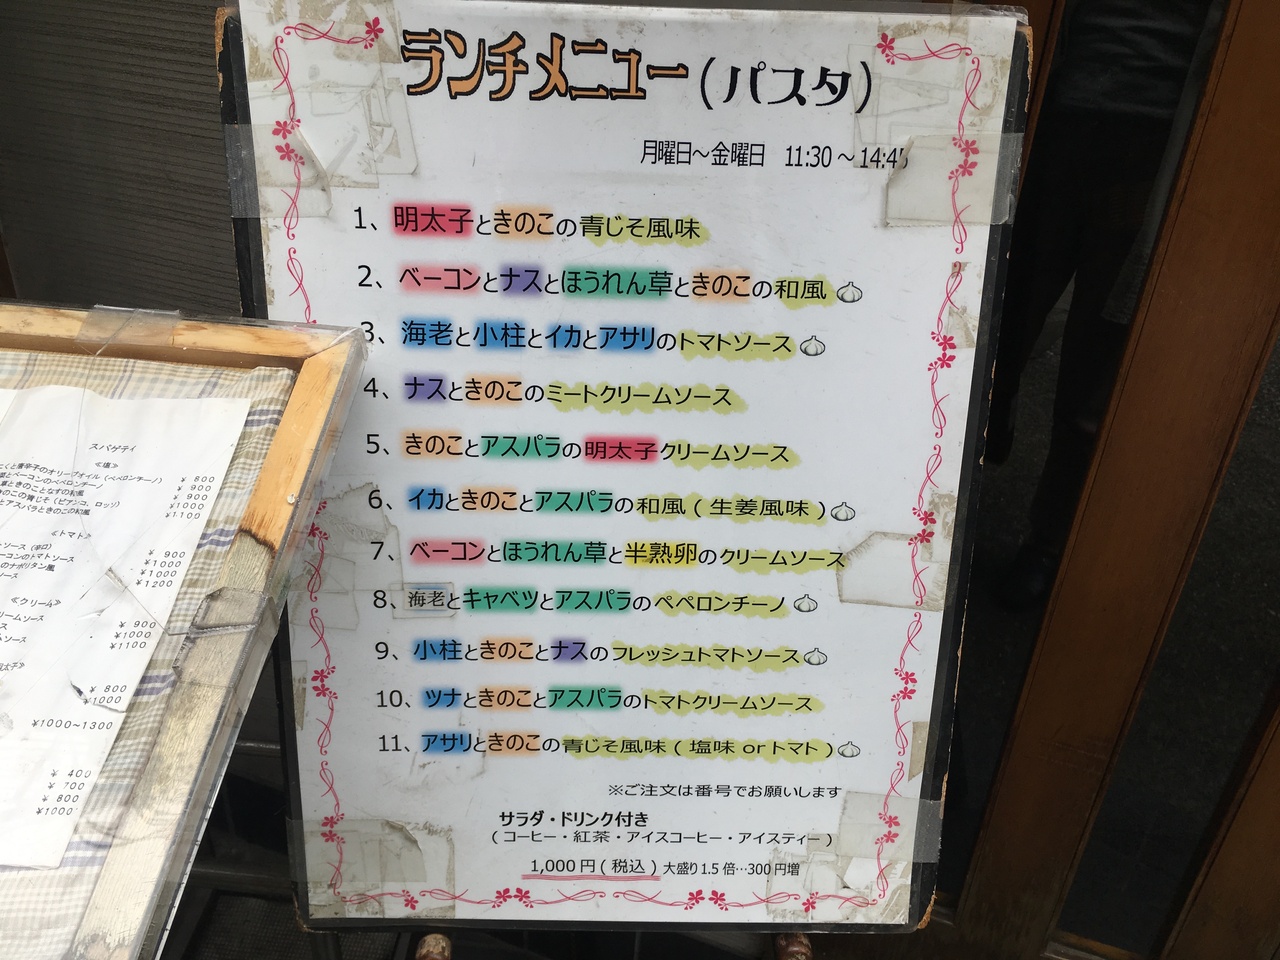 ランチメニュー(パスタ)
月曜日～金曜日 11:30～14:45
1、明太子ときのこの青じそ風味
2、ベーコンとナスとほうれん草ときのこの和風
3、海老と小柱とイカとアサリのトマトソース
4、ナスときのこのミートクリームソース
5、きのことアスパラの明太子クリームソース
6、イカときのことアスパラの和風(生姜風味)
7、ベーコンとほうれん草と半熟卵のクリームソース
8、海老とキャベツとアスパラのペペロンチーノ
9、小柱ときのことナスのフレッシュトマトソース
10、ツナときのことアスパラのトマトクリームソース
11、アサリときのこの青じそ風味(塩味orトマト)
※ご注文は番号でお願いします
サラダ・ドリンク付き
(コーヒー・紅茶・アイスコーヒー・アイスティー)
1,000円(税込) 大盛り1.5倍…300円増
スパゲティ
≪塩≫
くと唐辛子のオリーブオイル(ペペロンチーノ) ¥800
とベーコンのペペロンチーノ ¥900
草ときのことなすの和風 ¥900
のこの青じそ(ビアンコ、ロッソ) ¥1000
とアスパラときのこの和風 ¥1100
≪トマト≫
ソース(辛口) ¥900
ーコンのトマトソース ¥1000
のナポリタン風 ¥1000
ソース ¥1200
≪クリーム≫
リームソース ¥900
ース ¥1000
ムソース ¥1100
明太子≫
¥800
¥1000
¥1000~1300
¥400
¥700
¥800
¥1000